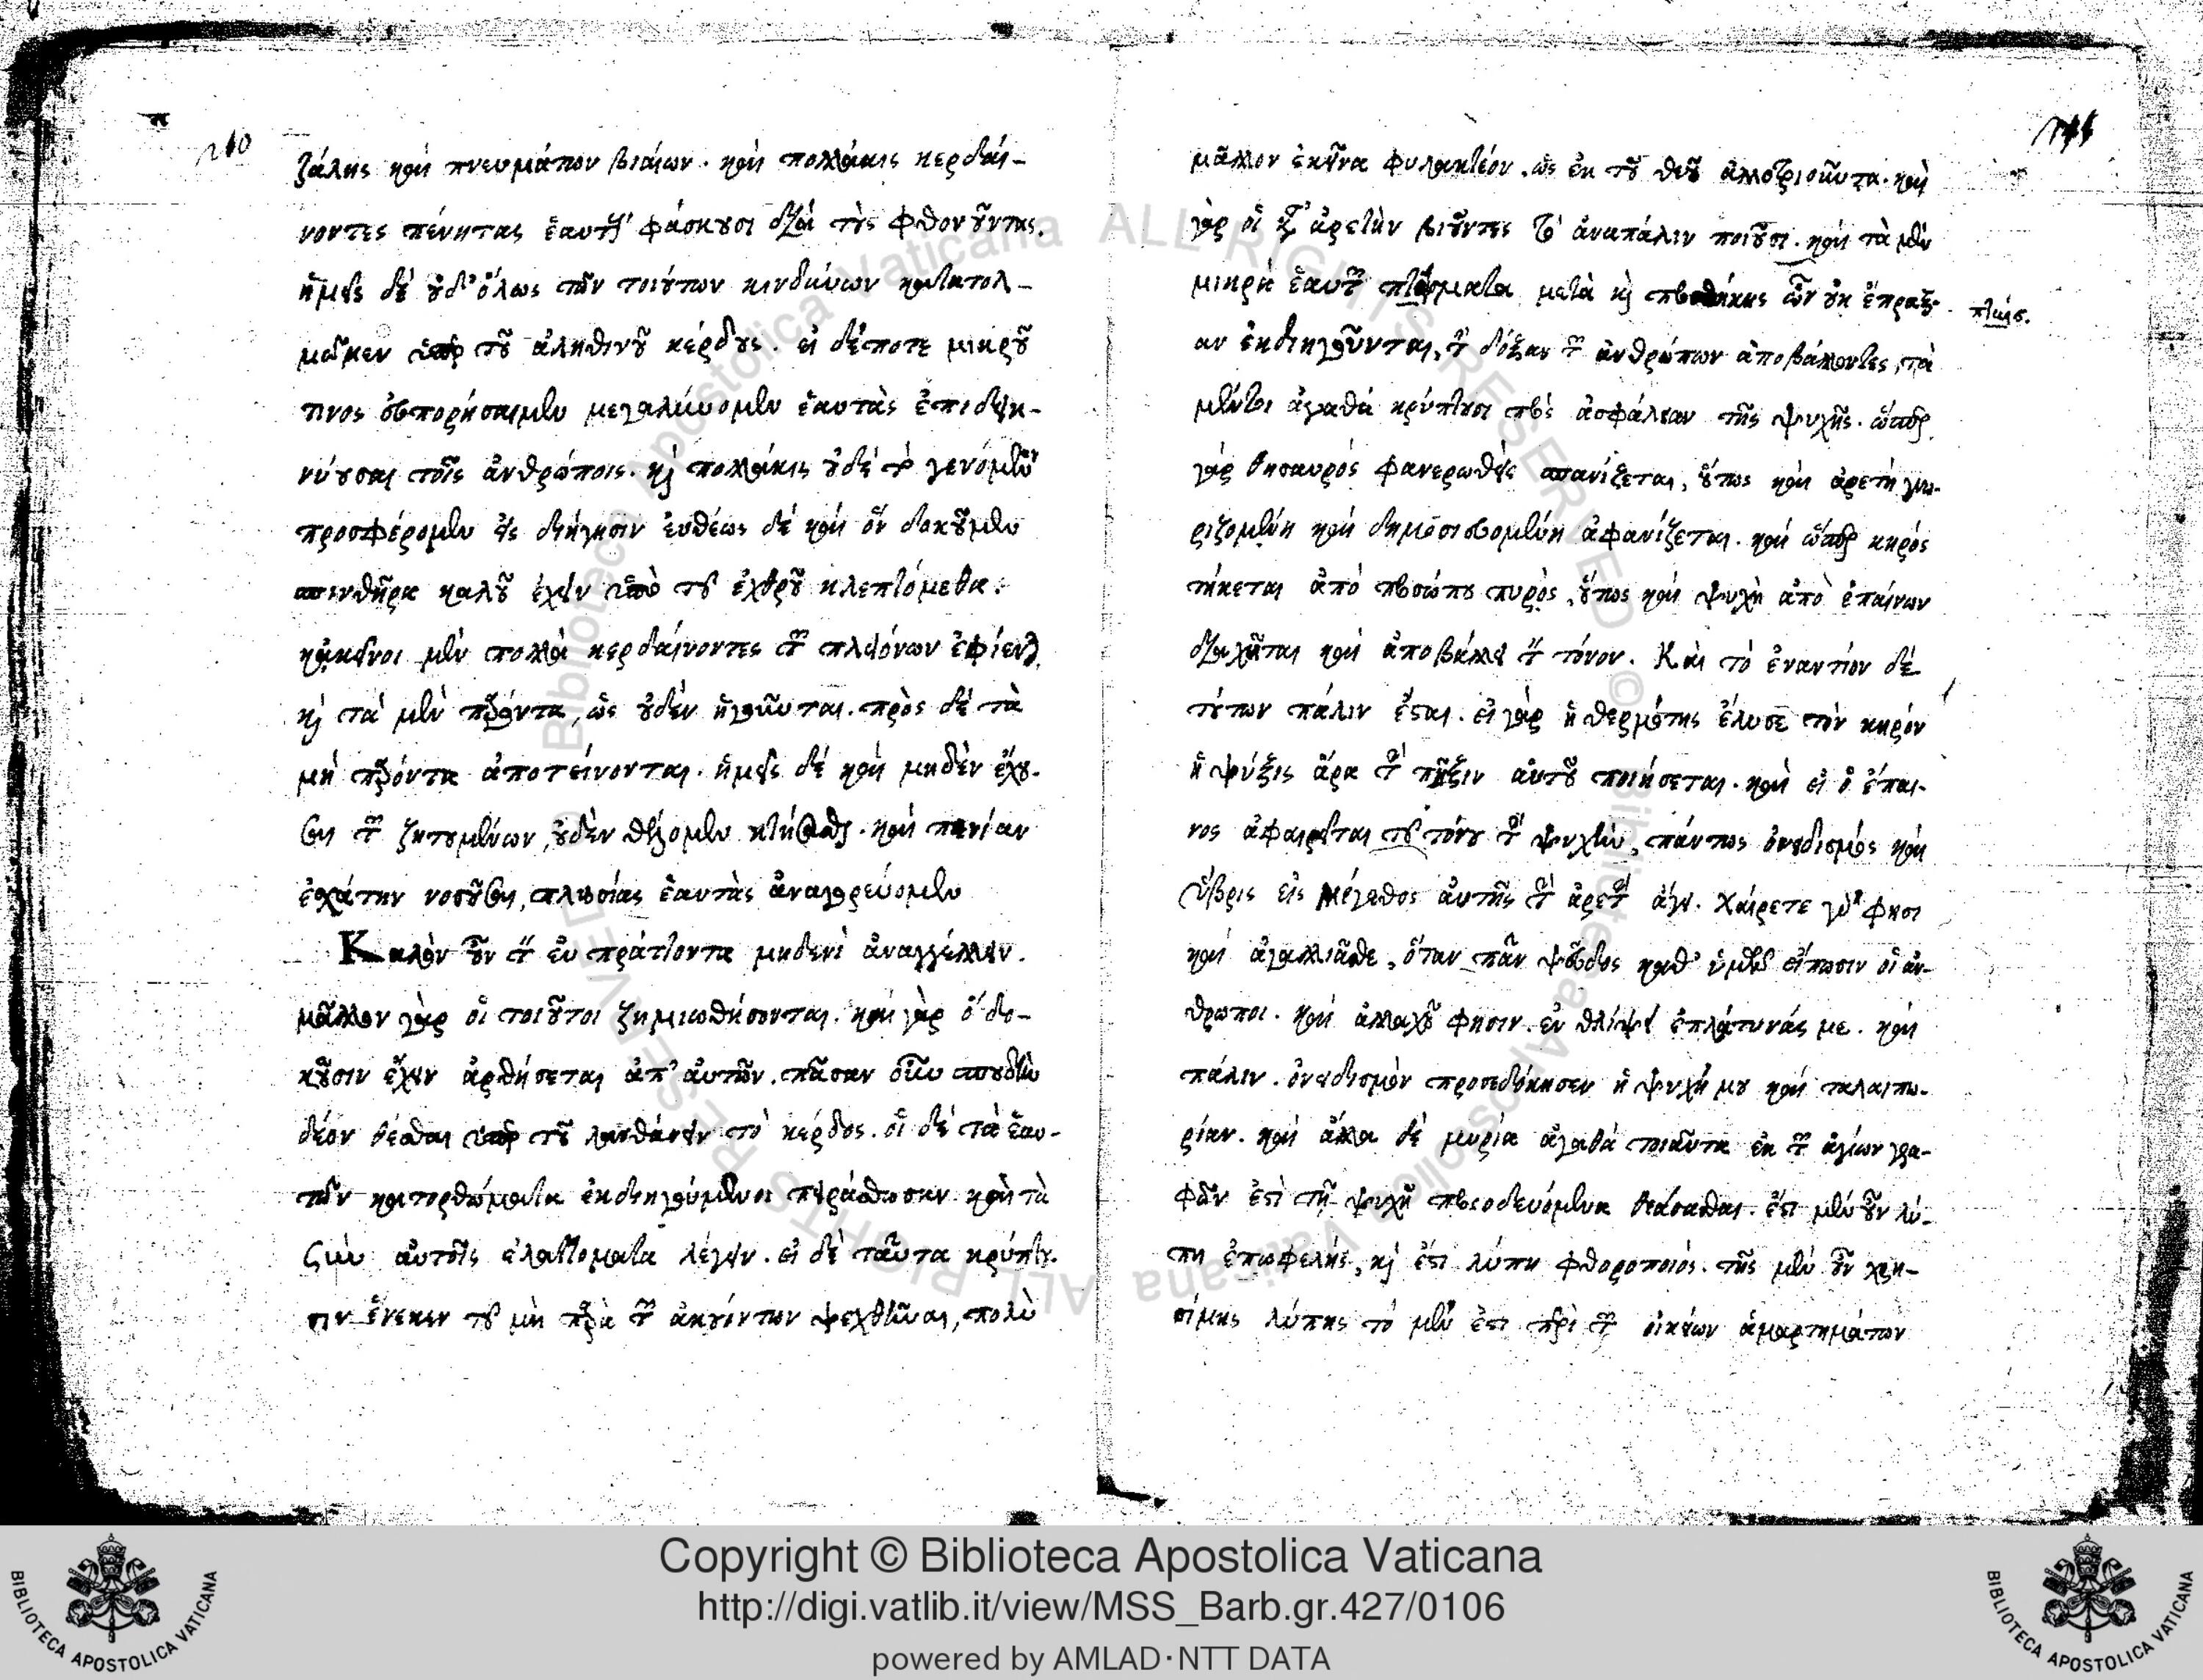 210
ζάλης καὶ πνευμάτων βιαίων. καὶ πολλάκις κερδαί-
νοντες πένητας ἑαυτοὺς φάσκουσι διὰ τοὺς φθονοῦντας.
ἡμεῖς δὲ οὐδ' ὅλως τῶν τοιούτων κινδύνων κατατολ-
μῶμεν ὑπὲρ τοῦ ἀληθινοῦ κέρδους. εἰ δέ ποτε μικροῦ
τινος εὐπορήσαιμεν μεγαλύνομεν ἑαυτὰς ἐπιδεικ-
νύουσαι τοῖς ἀνθρώποις. καὶ πολλάκις οὐδὲ τὸ γενόμενον
προσφέρομεν εἰς διήγησιν εὐθέως δὲ καὶ ὃν δοκοῦμεν
σπινθῆρα καλοῦ ἔχειν ὑπὸ τοῦ ἐχθροῦ κλεπτόμεθα:
κἀκεῖνοι μὲν πολλὰ κερδαίνοντες τῶν πλειόνων ἐφίενται
καὶ τὰ μὲν παρόντα, ὡς οὐδὲν ἡγοῦνται. πρὸς δὲ τὰ
μὴ παρόντα ἀποτείνονται. ἡμεῖς δὲ καὶ μηδὲν ἔχου-
σαι τῶν ζητουμένων, οὐδὲν θέλομεν κτήσασθαι. καὶ πενίαν
ἐσχάτην νοσοῦσαι, πλουσίας ἑαυτὰς ἀναγορεύομεν
Καλὸν οὖν τὸν εὖ πράττοντα μηδενὶ ἀναγγέλλειν.
μᾶλλον γὰρ οἱ τοιοῦτοι ζημιωθήσονται. καὶ γὰρ ὃ δο-
κοῦσιν ἔχειν ἀρθήσεται ἀπ' αὐτῶν. πᾶσαν οὖν σπουδὴν
δέον θέσθαι ὑπὲρ τοῦ λανθάνειν τὸ κέρδος. οἱ δὲ τὰ ἑαυ-
τῶν κατορθώματα ἐκδιηγούμενοι πειράσθωσαν καὶ τὰ
σὺν αὐτοῖς ἐλαττόματα λέγειν. εἰ δὲ ταῦτα κρύπτου-
σιν ἕνεκεν τοῦ μὴ παρὰ τῶν ἀκουόντων ψεχθῆναι, πολὺ
211
μᾶλλον ἐκεῖνα φυλακτέον. ὡς ἐκ τοῦ θεοῦ ἀλλοτριοῦντα. καὶ
γὰρ οἱ κατ' ἀρετὴν βιοῦντες τὸ ἀνάπαλιν ποιοῦσι. καὶ τὰ μὲν
μικρὰ ἑαυτῶν πτώσματα μετὰ καὶ προσθήκης ὧν οὐκ ἔπραξ-
πταίσ.
αν ἐκδιηγοῦνται, τὴν δόξαν τῶν ἀνθρώπων ἀποβάλλοντες, τὰ
μέντοι ἀγαθὰ κρύπτουσι πρὸς ἀσφάλειαν τῆς ψυχῆς. ὥσπερ
γὰρ θησαυρὸς φανερωθεὶς σπανίζεται, οὕτως καὶ ἀρετὴ γνω-
ριζομένη καὶ δημοσιευομένη ἀφανίζεται. καὶ ὥσπερ κηρὸς
τήκεται ἀπὸ προσώπου πυρὸς, οὕτως καὶ ψυχὴ ἀπὸ ἐπαίνων
διαχεῖται καὶ ἀποβάλλει τὸν τόνον. Καὶ τὸ ἐναντίον δὲ
τούτων πάλιν ἔσται. εἰ γὰρ ἡ θερμότης ἔλυσε τὸν κηρὸν
ἡ ψύξις ἄρα τὴν πῆξιν αὐτοῦ ποιήσεται. καὶ εἰ ὁ ἔπαι-
νος ἀφαιρεῖται τοῦ τόνου τὴν ψυχὴν, πάντως ὀνειδισμὸς καὶ
ὕβρις εἰς μέγεθος αὐτῆς τὴν ἀρετὴν ἄγει. χαίρετε γὰρ φησι
καὶ ἀγαλλιᾶσθε, ὅταν πᾶν ψεῦδος καθ' ὑμῶν εἴπωσιν οἱ ἄν-
θρωποι. καὶ ἀλλαχοῦ φησιν. ἐν θλίψει ἐπλάτυνάς με. καὶ
πάλιν. ὀνειδισμὸν προσεδόκησεν ἡ ψυχή μου καὶ ταλαιπω-
ρίαν. καὶ ἄλλα δὲ μυρία ἀγαθὰ τοιαῦτα ἐκ τῶν ἁγίων γρα-
φῶν ἐστὶ τῇ ψυχῇ προσοδευόμενα θεάσασθαι. ἔστι μὲν οὖν λύ-
πη ἐπωφελής, καὶ ἔστι λύπη φθοροποιός. τῆς μὲν οὖν χρη-
σίμης λύπης τὸ μέν ἐστι περὶ τῶν οἰκείων ἁμαρτημάτων
Copyright © Biblioteca Apostolica Vaticana
http://digi.vatlib.it/view/MSS_Barb.gr.427/0106
powered by AMLAD·NTT DATA
BIBLIOTECA APOSTOLICA VATICANA
BIBLIOTECA APOSTOLICA VATICANA